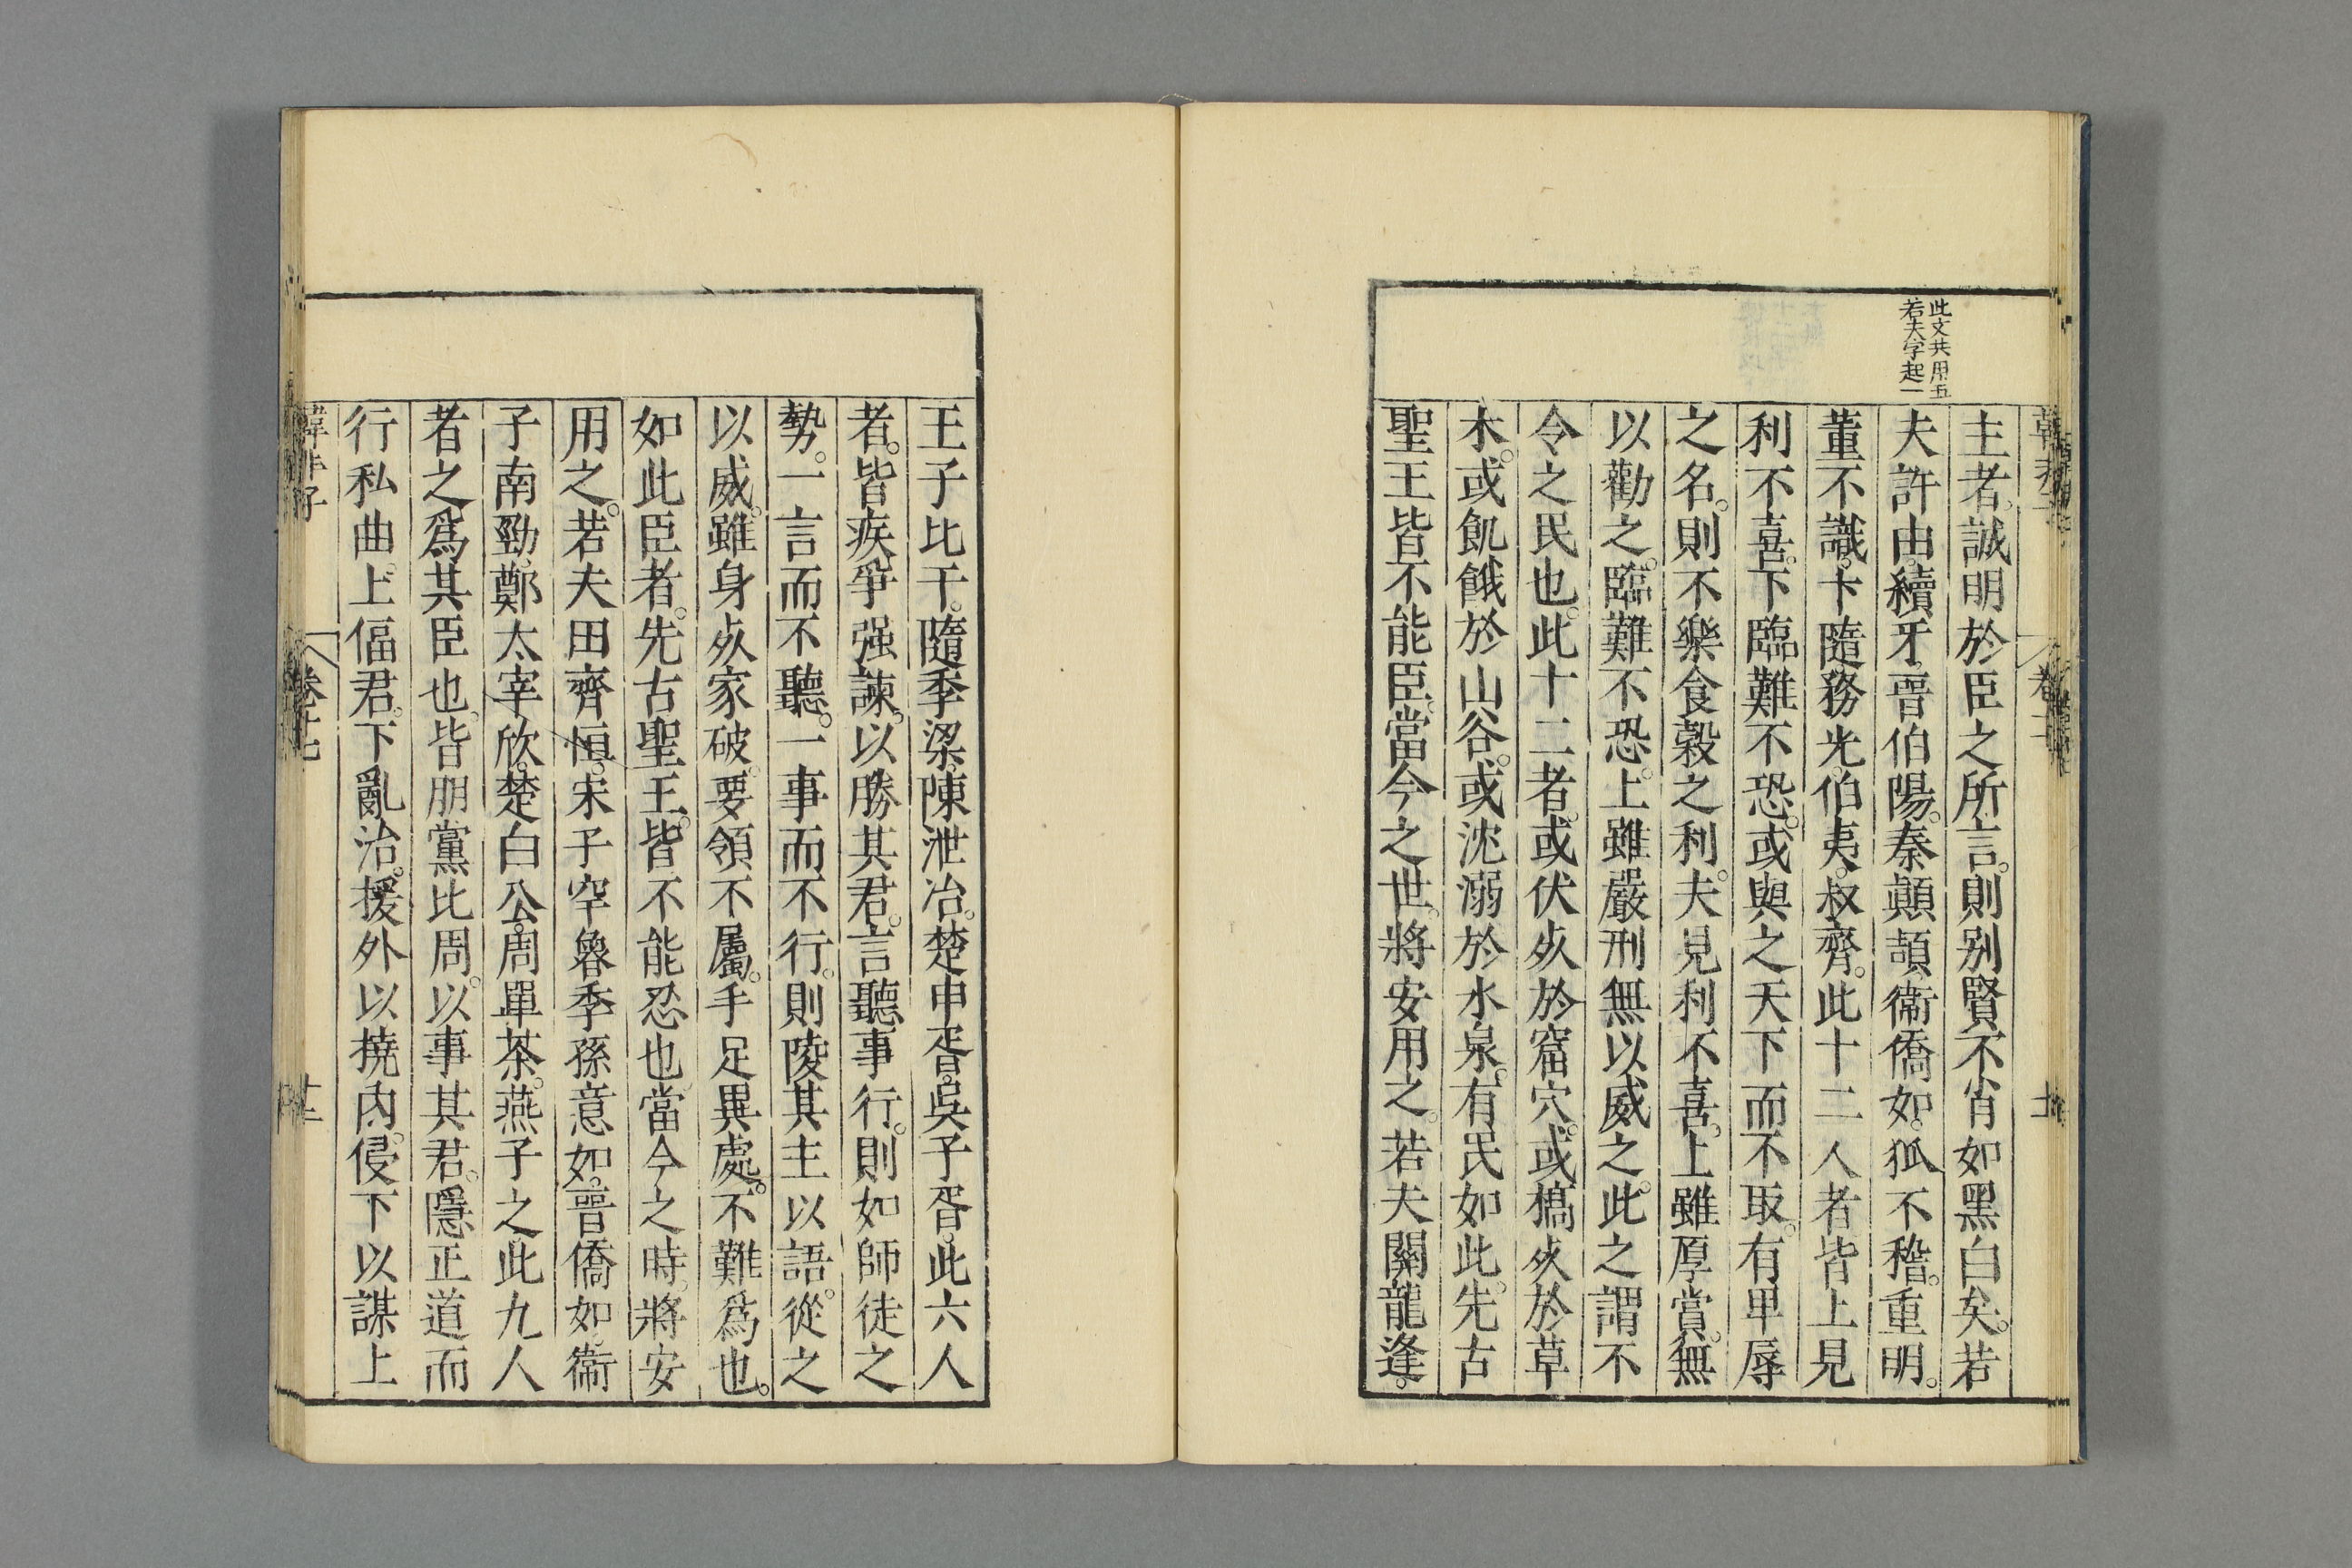 此文共用五
若夫字起一
主者誠明於臣之所言則別賢不肖如黑白矣若
夫許由續牙晉伯陽秦顛頡衞僑如狐不稽重明
董不識卞隨務光伯夷叔齊此十二人者皆上見
利不喜下臨難不恐或與之天下而不取有卑辱
之名則不樂食穀之利夫見利不喜上雖厚賞無
以勸之臨難不恐上雖嚴刑無以威之此之謂不
令之民也此十二者或伏死於窟穴或槁死於草
木或飢餓於山谷或沈溺於水泉有民如此先古
聖王皆不能臣當今之世將安用之若夫關龍逢
王子比干隨季梁陳泄冶楚申胥吳子胥此六人
者皆疾爭强諫以勝其君言聽事行則如師徒之
勢一言而不聽一事而不行則陵其主以語從之
以威雖身死家破要領不屬手足異處不難爲也
如此臣者先古聖王皆不能忍也當今之時將安
用之若夫田齊恒宋子罕魯季孫意如晉僑如衞
子南勁鄭太宰欣楚白公周單荼燕子之此九人
者之爲其臣也皆朋黨比周以事其君隱正道而
行私曲上偪君下亂治援外以撓內侵下以謀上